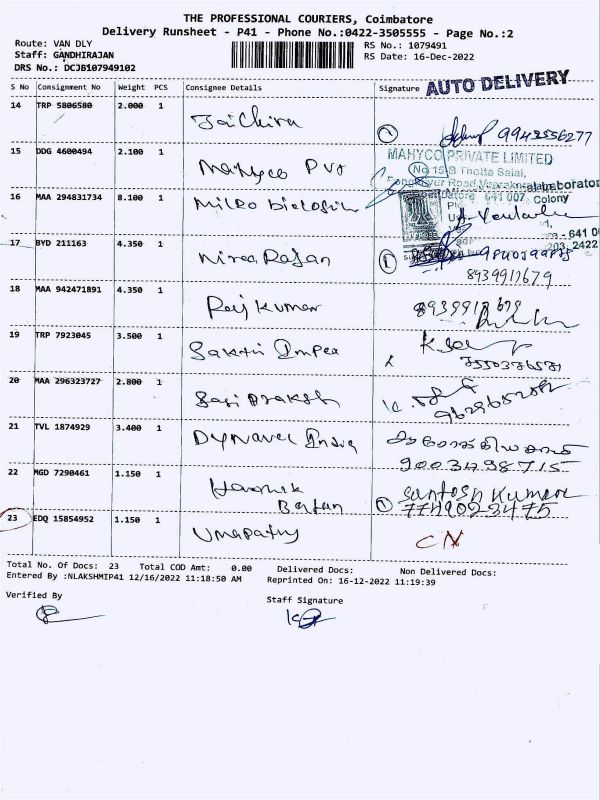 THE PROFESSIONAL COURIERS, Coimbatore
Delivery Runsheet - P41 - Phone No.:0422-3505555 - Page No.:2
Route: VAN DLY
Staff: GANDHIRAJAN
DRS No.: DCJB107949102
RS No.: 1079491
RS Date: 16-Dec-2022
S No Consignment No Weight PCS Consignee Details Signature
AUTO DELIVERY
14 TRP 5806580 2.000 1 Jai Chitra
9942556277
15 DDG 4600494 2.100 1 Mahyco Pvt
MAHYCO PRIVATE LIMITED
No 15 B Thotta Salai,
Road
641 007
Colony
16 MAA 294831734 8.100 1 Micro
- 641 0
2422
17 BYD 211163 4.350 1 Rajan
8939917679
18 MAA 942471891 4.350 1 Raj Kumar
8939917679
19 TRP 7923045 3.500 1 Sakthi Impex
7550376571
20 MAA 296323727 2.800 1
21 TVL 1874929 3.400 1 India
9003498715
22 MGD 7290461 1.150 1
Santosh Kumar
7749023475
23 EDQ 15854952 1.150 1 Umapathy
CN
Total No. Of Docs: 23 Total COD Amt: 0.00 Delivered Docs: Non Delivered Docs:
Entered By :NLAKSHMIP41 12/16/2022 11:18:50 AM Reprinted On: 16-12-2022 11:19:39
Verified By
Staff Signature